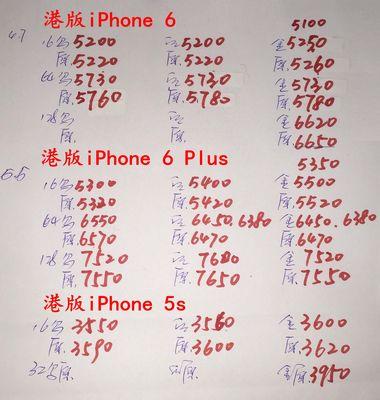 港版iPhone 6
5100
4.7 16G 5200 白 5200 金 5250
原. 5220 原. 5220 原. 5260
64G 5730 白 5730 金 5730
原. 5760 原. 5780 原. 5780
128G 白 金 6620
原. 原. 原. 6650
港版iPhone 6 Plus
5350
5.5 16G 5300 白 5400 金 5500
原. 5320 原. 5420 原. 5520
64G 6550 白 6450.6380 金 6450.6380
原. 6570 原. 6470 原. 6470
128G 7520 白 7680 金 7520
原. 7550 原. 7650 原. 7550
港版iPhone 5s
16G 3550 白 3560 金 3600
原. 3590 原. 3600 原. 3620
32G原. 原. 金原. 3950